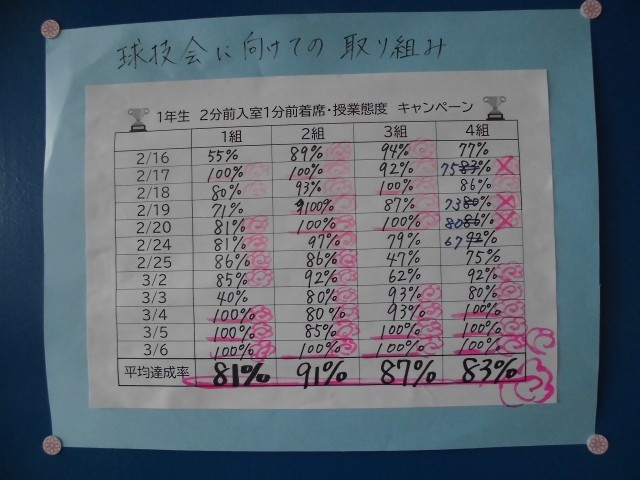 球技会に向けての取り組み
1年生 2分前入室1分前着席・授業態度 キャンペーン
1組 2組 3組 4組
2/16 55% 89% 94% 77%
2/17 100% 100% 92% 75 83%
2/18 80% 93% 100% 86%
2/19 71% 100% 87% 73 80%
2/20 81% 100% 100% 80 86%
2/24 81% 97% 79% 67 92%
2/25 86% 86% 47% 75%
3/2 85% 92% 62% 92%
3/3 40% 80% 93% 80%
3/4 100% 80% 93% 100%
3/5 100% 85% 100% 100%
3/6 100% 100% 100% 100%
平均達成率 81% 91% 87% 83%